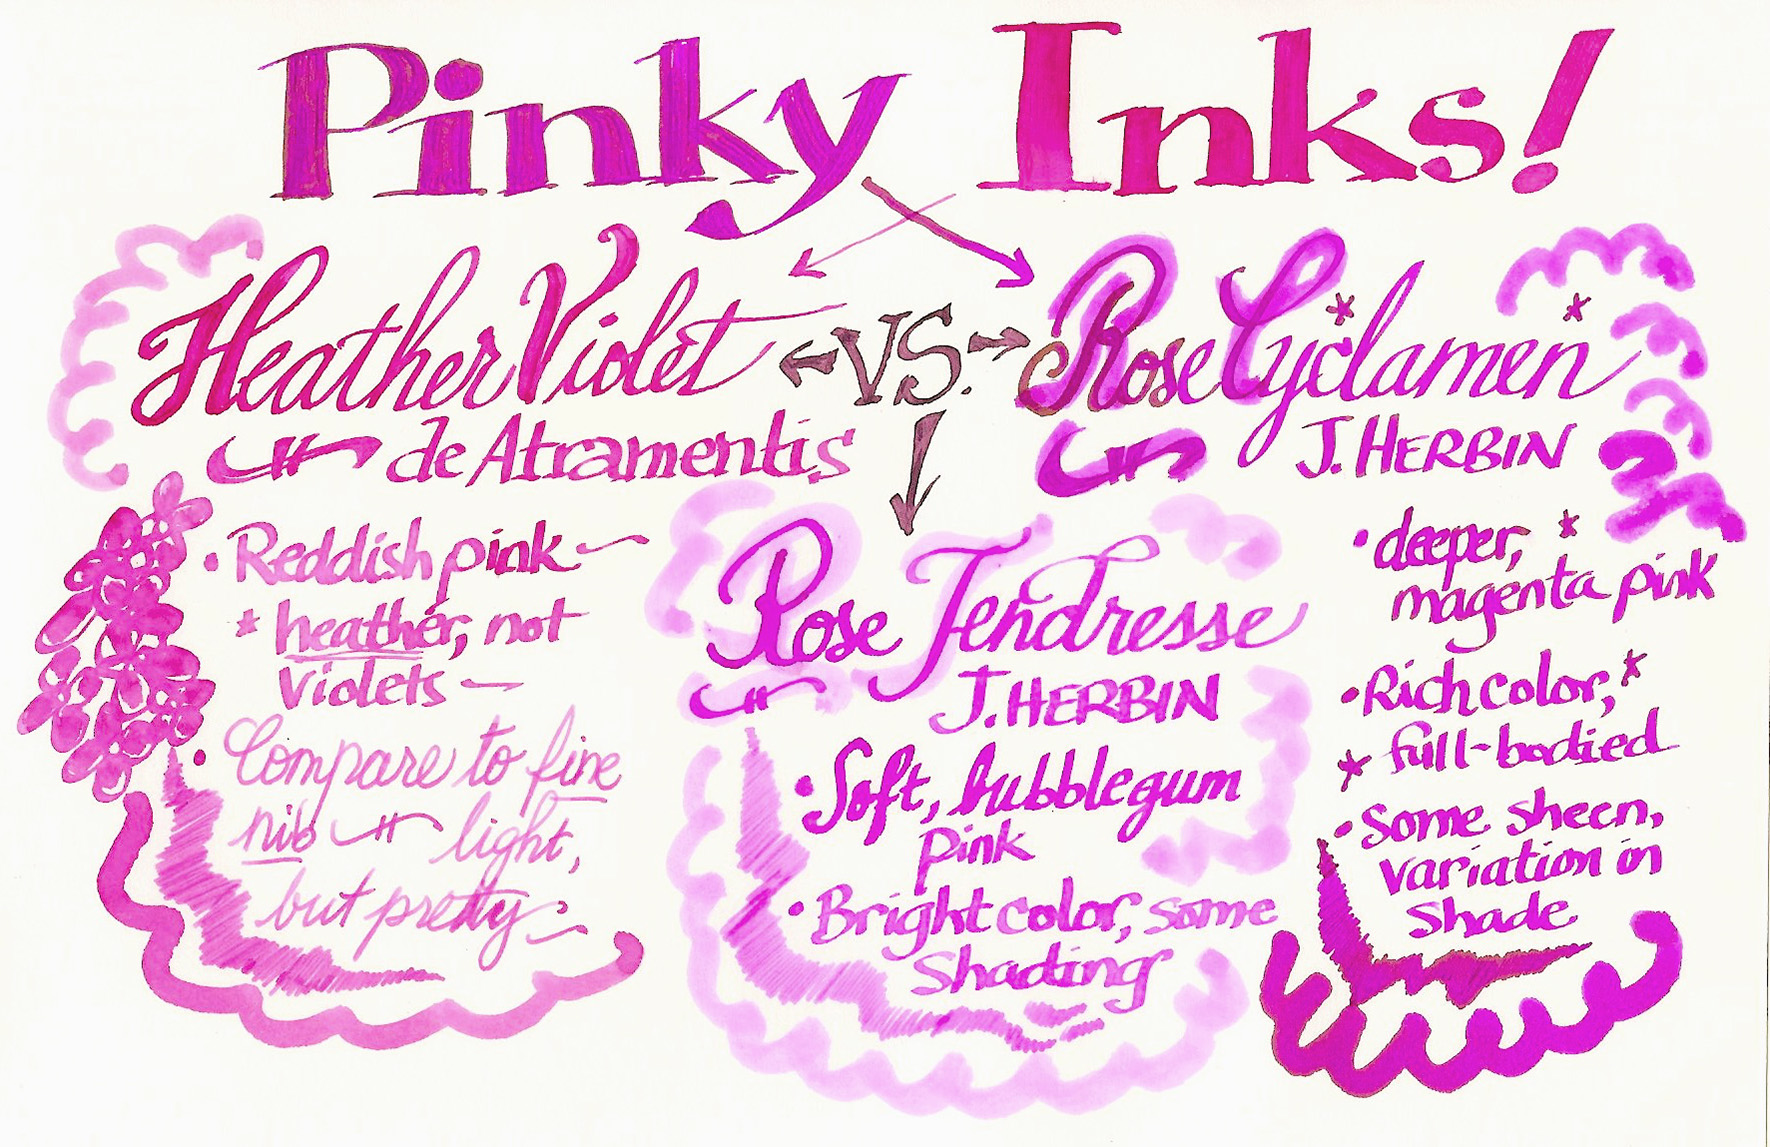 Pinky Inks!
Heather Violet
de Atramentis
VS.
Rose Cyclamen
J. HERBIN
• Reddish pink ~
* heather, not
violets —
• Compare to fine
nib ~ light,
but pretty ~
Rose Tendresse
J. HERBIN
• Soft, bubblegum
pink
• Bright color, some
shading
• deeper, *
magenta pink
• Rich color, *
* full-bodied
• Some sheen,
variation in
shade